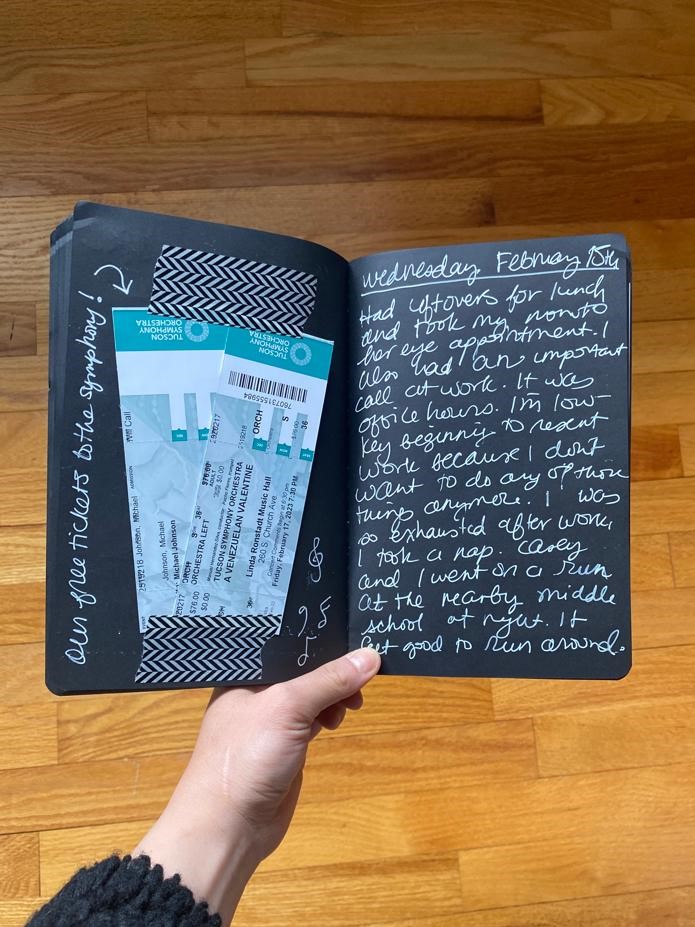 our free tickets to the symphony!
TUCSON
SYMPHONY
ORCHESTRA
Will Call
ADMISSION
2519218 Johnson, Michael
Johnson, Michael
Michael Johnson
TUCSON
SYMPHONY
ORCHESTRA
760731555984
ORCH
S
36
2519218
$76.00
ADULT
ORCH
ORCHESTRA LEFT
$76.00
$0.00
TUCSON SYMPHONY ORCHESTRA
A VENEZUELAN VALENTINE
Linda Ronstadt Music Hall
260 S. Church Ave
Friday, February 17, 2023 7:30 PM
Wednesday February 15th
Had leftovers for lunch
and took my mom to
her eye appointment. I
also had an important
call at work. It was
office hours. I'm low-
key beginning to resent
work because I don't
want to do any of those
things anymore. I was
so exhausted after work,
I took a nap. Carey
and I went on a run
at the nearby middle
school at night. It
felt good to run around.